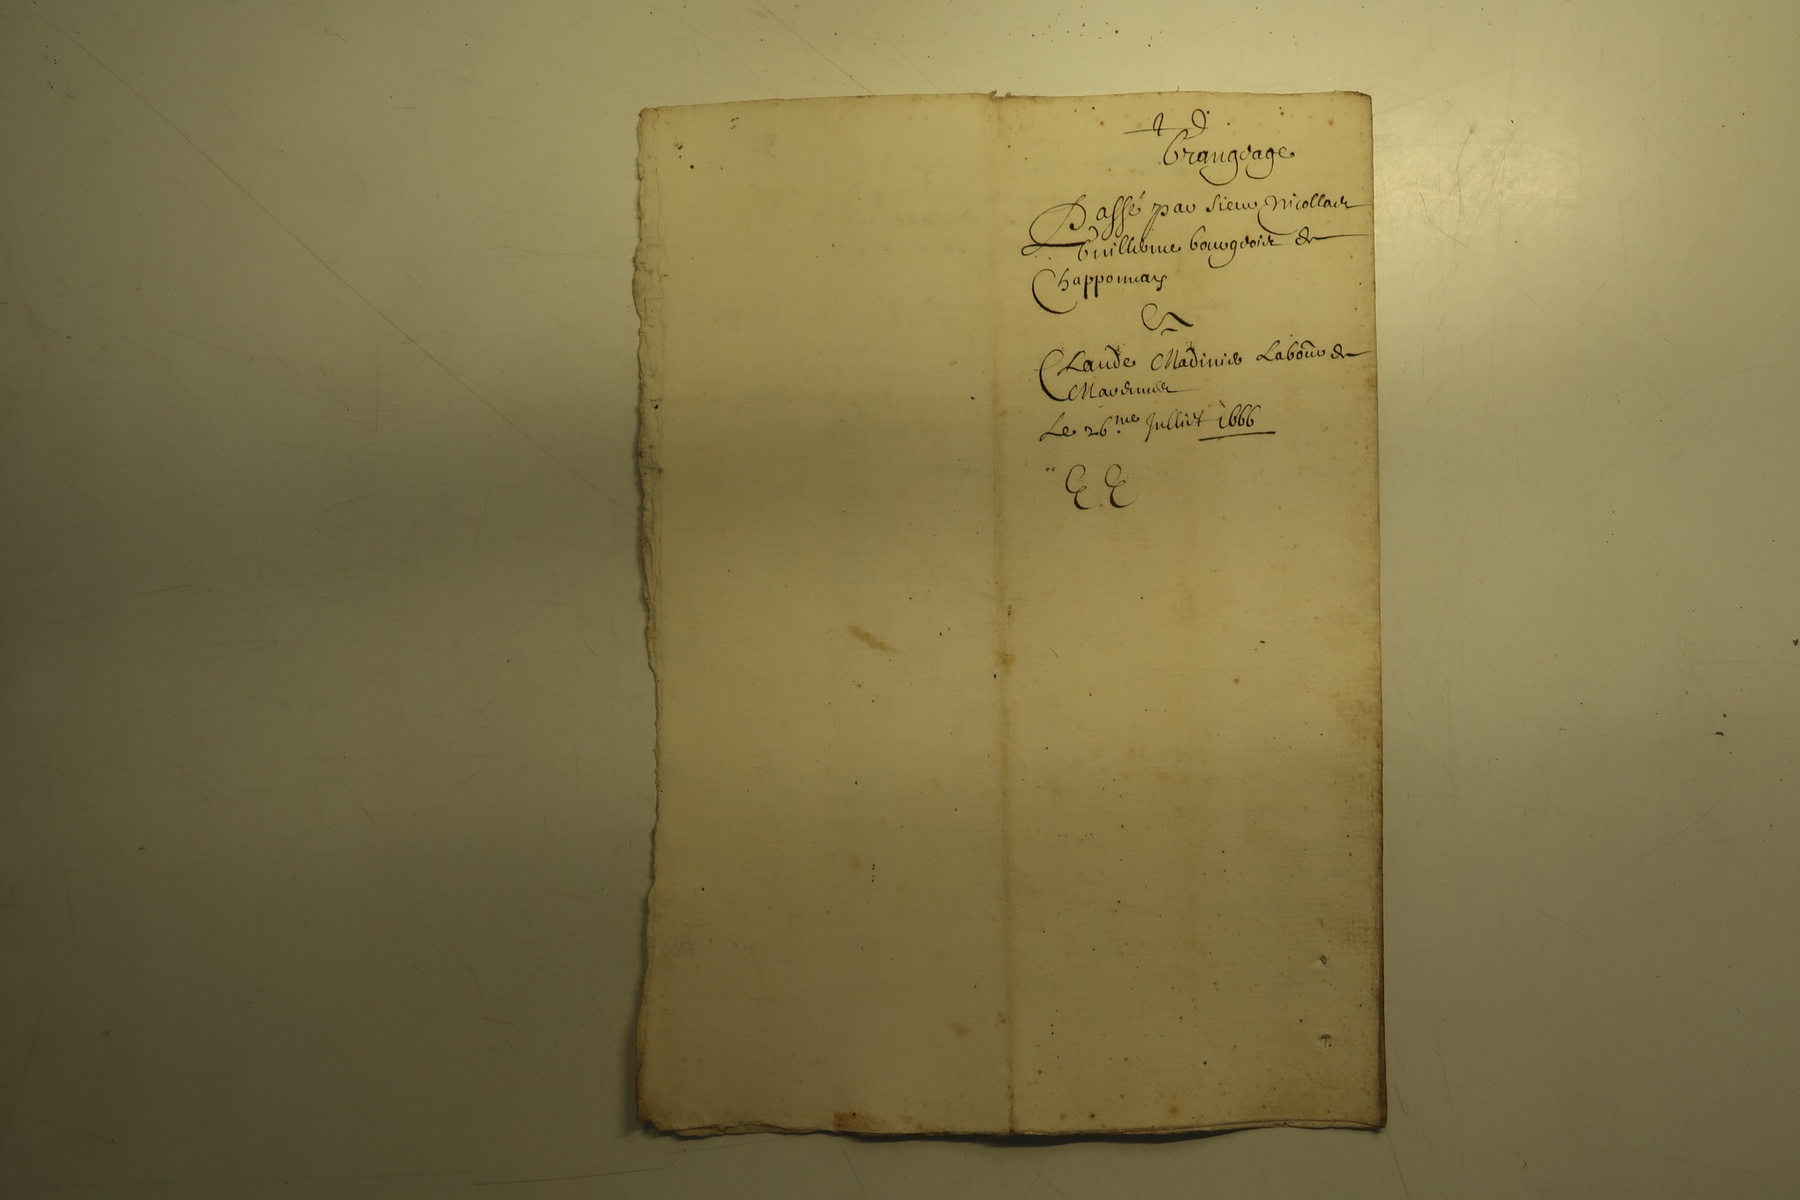 Grangeage
Passé par sieur Nicollas
Guilliome bourgeois de
Chapponnay
Et
Claude Madinie Labour de
Marennes
Le 26me Julliet 1666